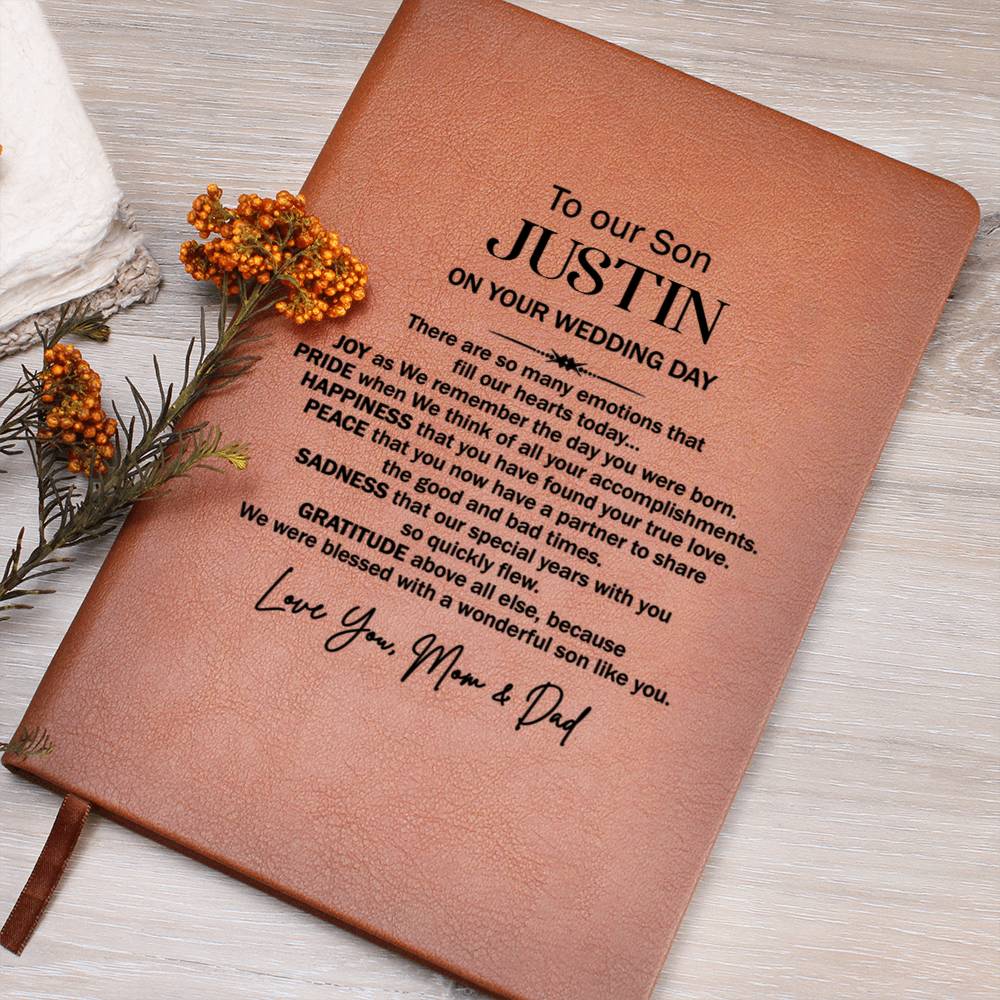 To our Son
JUSTIN
ON YOUR WEDDING DAY
There are so many emotions that
fill our hearts today...
JOY as We remember the day you were born.
PRIDE when We think of all your accomplishments.
HAPPINESS that you have found your true love.
PEACE that you now have a partner to share
the good and bad times.
SADNESS that our special years with you
so quickly flew.
GRATITUDE above all else, because
We were blessed with a wonderful son like you.
Love You, Mom & Dad